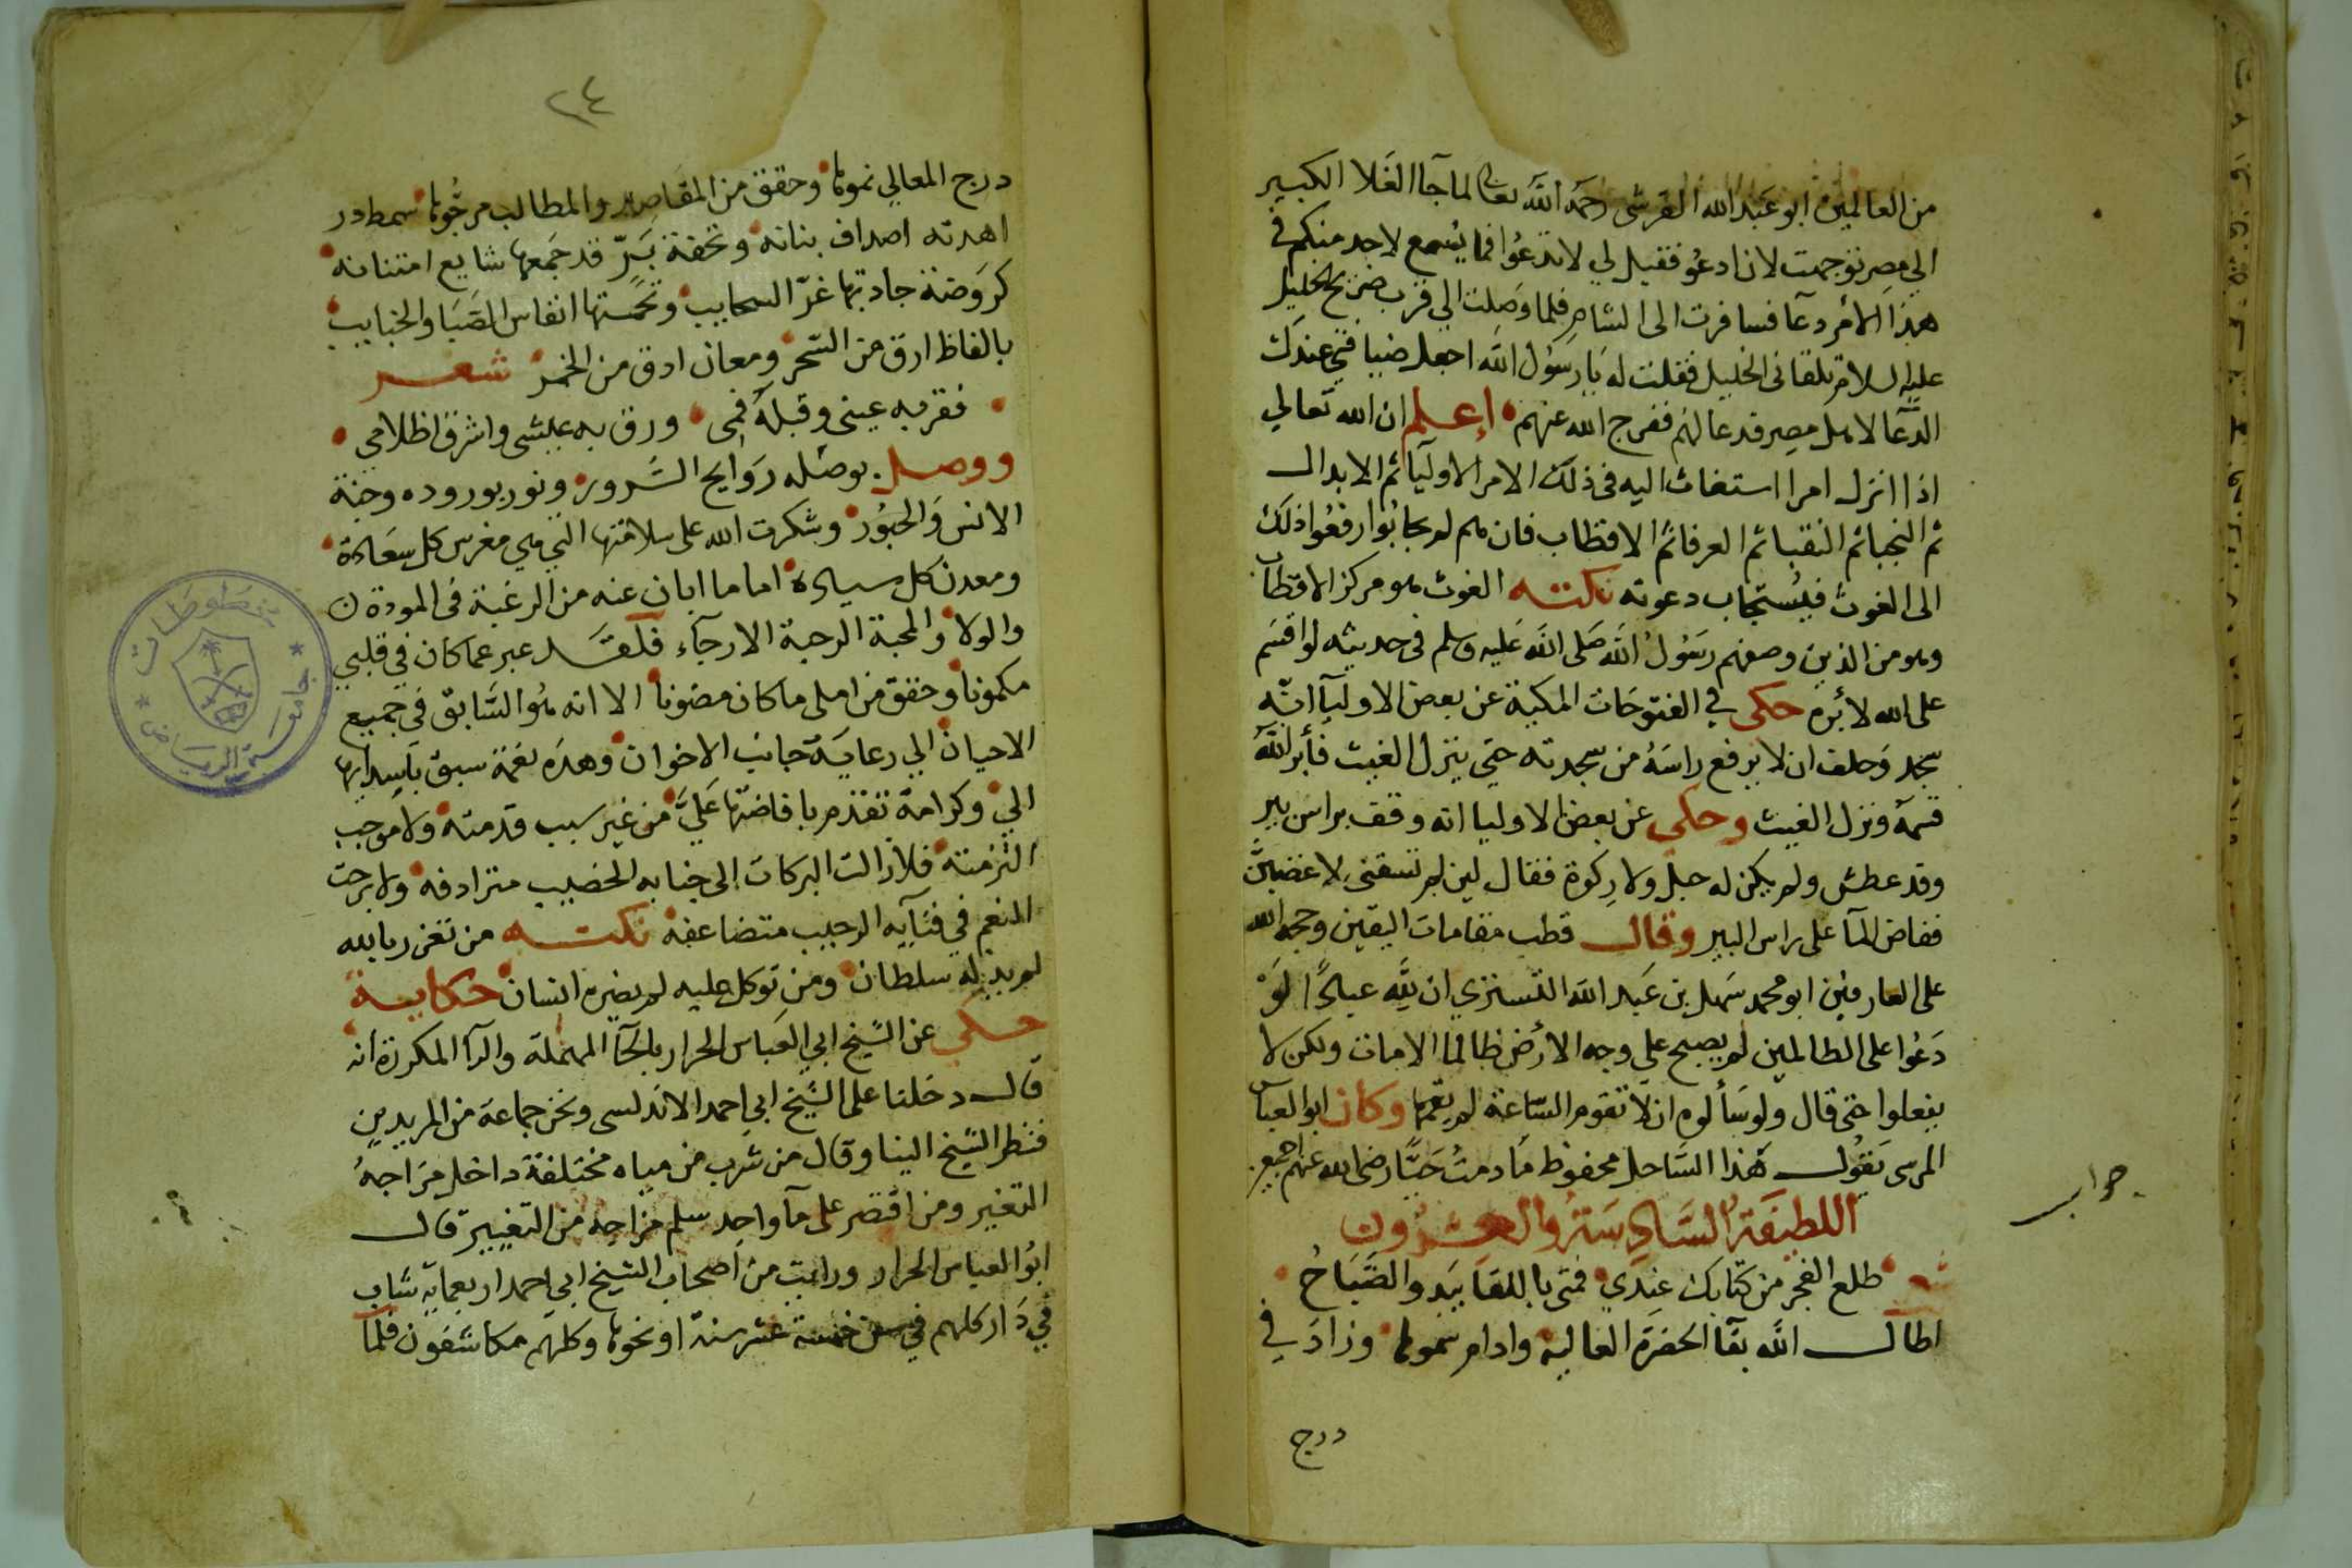 من العالمين ابو عبد الله القرشى رحمه الله تعالى لما جآ الغلا الكبير
الى مصر توجهت لان ادعو فقيل لي لا تدعوا فما يسمع لاحد منكم في
هذا الامر دعآ فسافرت الى الشام فلما وصلت الي قرب ضريح الخليل
عليه السلام تلقانى الخليل فقلت له يا رسول الله اجعل ضيافتي عندك
الدعآ لاهل مصر فدعا لهم ففرج الله عنهم إعلم ان الله تعالي
اذا انزل امرا استغاث اليه فى ذلك الامر الاوليآ ثم الابدال
ثم النجبا ثم النقبا ثم العرفا ثم الاقطاب فان هم لم يجابوا رفعوا ذلك
الى الغوث فيستجاب دعوته نكته الغوث هو مركز الاقطاب
وهو من الذين وصفهم رسول الله صلى الله عليه وسلم فى حديثه لو اقسم
على الله لأبره حكى في الفتوحات المكية عن بعض الاوليآ انه
سجد وحلف ان لا يرفع راسه من سجدته حتي ينزل الغيث فأبر الله
قسمه ونزل الغيث وحكى عن بعض الاوليا انه وقف براس بير
وقد عطش ولم يكن له حبل ولا ركوة فقال لين لم تسقنى لاغضبن
ففاض المآ على راس البير وقال قطب مقامات اليقين وحجة الله
على العارفين ابو محمد سهل بن عبد الله التسترى ان لله عبادًا لو
دعوا على الظالمين لم يصبح علي وجه الارض ظالما الا مات ولكن لا
يفعلوا حتى قال ولو سألوه ان لا تقوم الساعة لم يقمها وكان ابو العباس
المرسى يقول هذا الساحل محفوظ ما دمت حيًا رضى الله عنهم اجمعين
جواب
اللطيفة السادسة والعشرون
شعر طلع الفجر من كتابك عندي فمتى باللقا يبدو الصباح
اطال الله بقآ الحضرة العالية وادام سموها وزاد في
درج
٢٤
درج المعالي نموها وحقق من المقاصد والمطالب مرجوها سمط در
اهدته اصداف بنانه وتحفة بر قد جمعها شايع امتنانه
كروضة جادتها غر السحايب ونحستها انفاس الصبا والجنايب
بالفاظ ارق من السحر ومعان ادق من الخمر شعر
فقر به عينى وقبله فمى ورق به عيشى واشرق اظلامى
ووصل بوصله روايح السرور ونور بوروده وجنة
الانس والحبور وشكرت الله على سلامتها التي هي مغرس كل سعادة
ومعدن كل سيادة اما ما ابان عنه من الرغبة فى المودة
والولا والمحبة الرحبة الارجآء فلقد عبر عما كان في قلبي
مكمونا وحقق من املى ما كان مضنونا الا انه هو السابق فى جميع
الاحيان الي رعاية جانب الاخوان وهذه نعمة سبق باسدايها
الي وكرامة تقدم بافاضتها علي من غير سبب قدمته ولا موجب
التزمته فلا زالت البركات الى جنابه الخصيب مترادفه ولا برحت
النعم في فنآيه الرحيب متضاعفة نكته من تعزز بالله
لم يذله سلطان ومن توكل عليه لم يضره انسان حكاية
حكى عن الشيخ ابي العباس الحرار بالحآ المهملة والرآ المكررة انه
قال دخلنا على الشيخ ابى احمد الاندلسى ونحن جماعة من المريدين
فنظر الشيخ الينا وقال من شرب من مياه مختلفة داخل مزاجه
التغيير ومن اقتصر على مآ واحد سلم مزاجه من التغيير قال
ابو العباس الحرار ورايت من اصحاب الشيخ ابي احمد اربعماية شاب
في دار كلهم في سن خمسة عشر سنة او نحوها وكلهم مكاشفون فلما
جامعة الرياض
مخطوطات